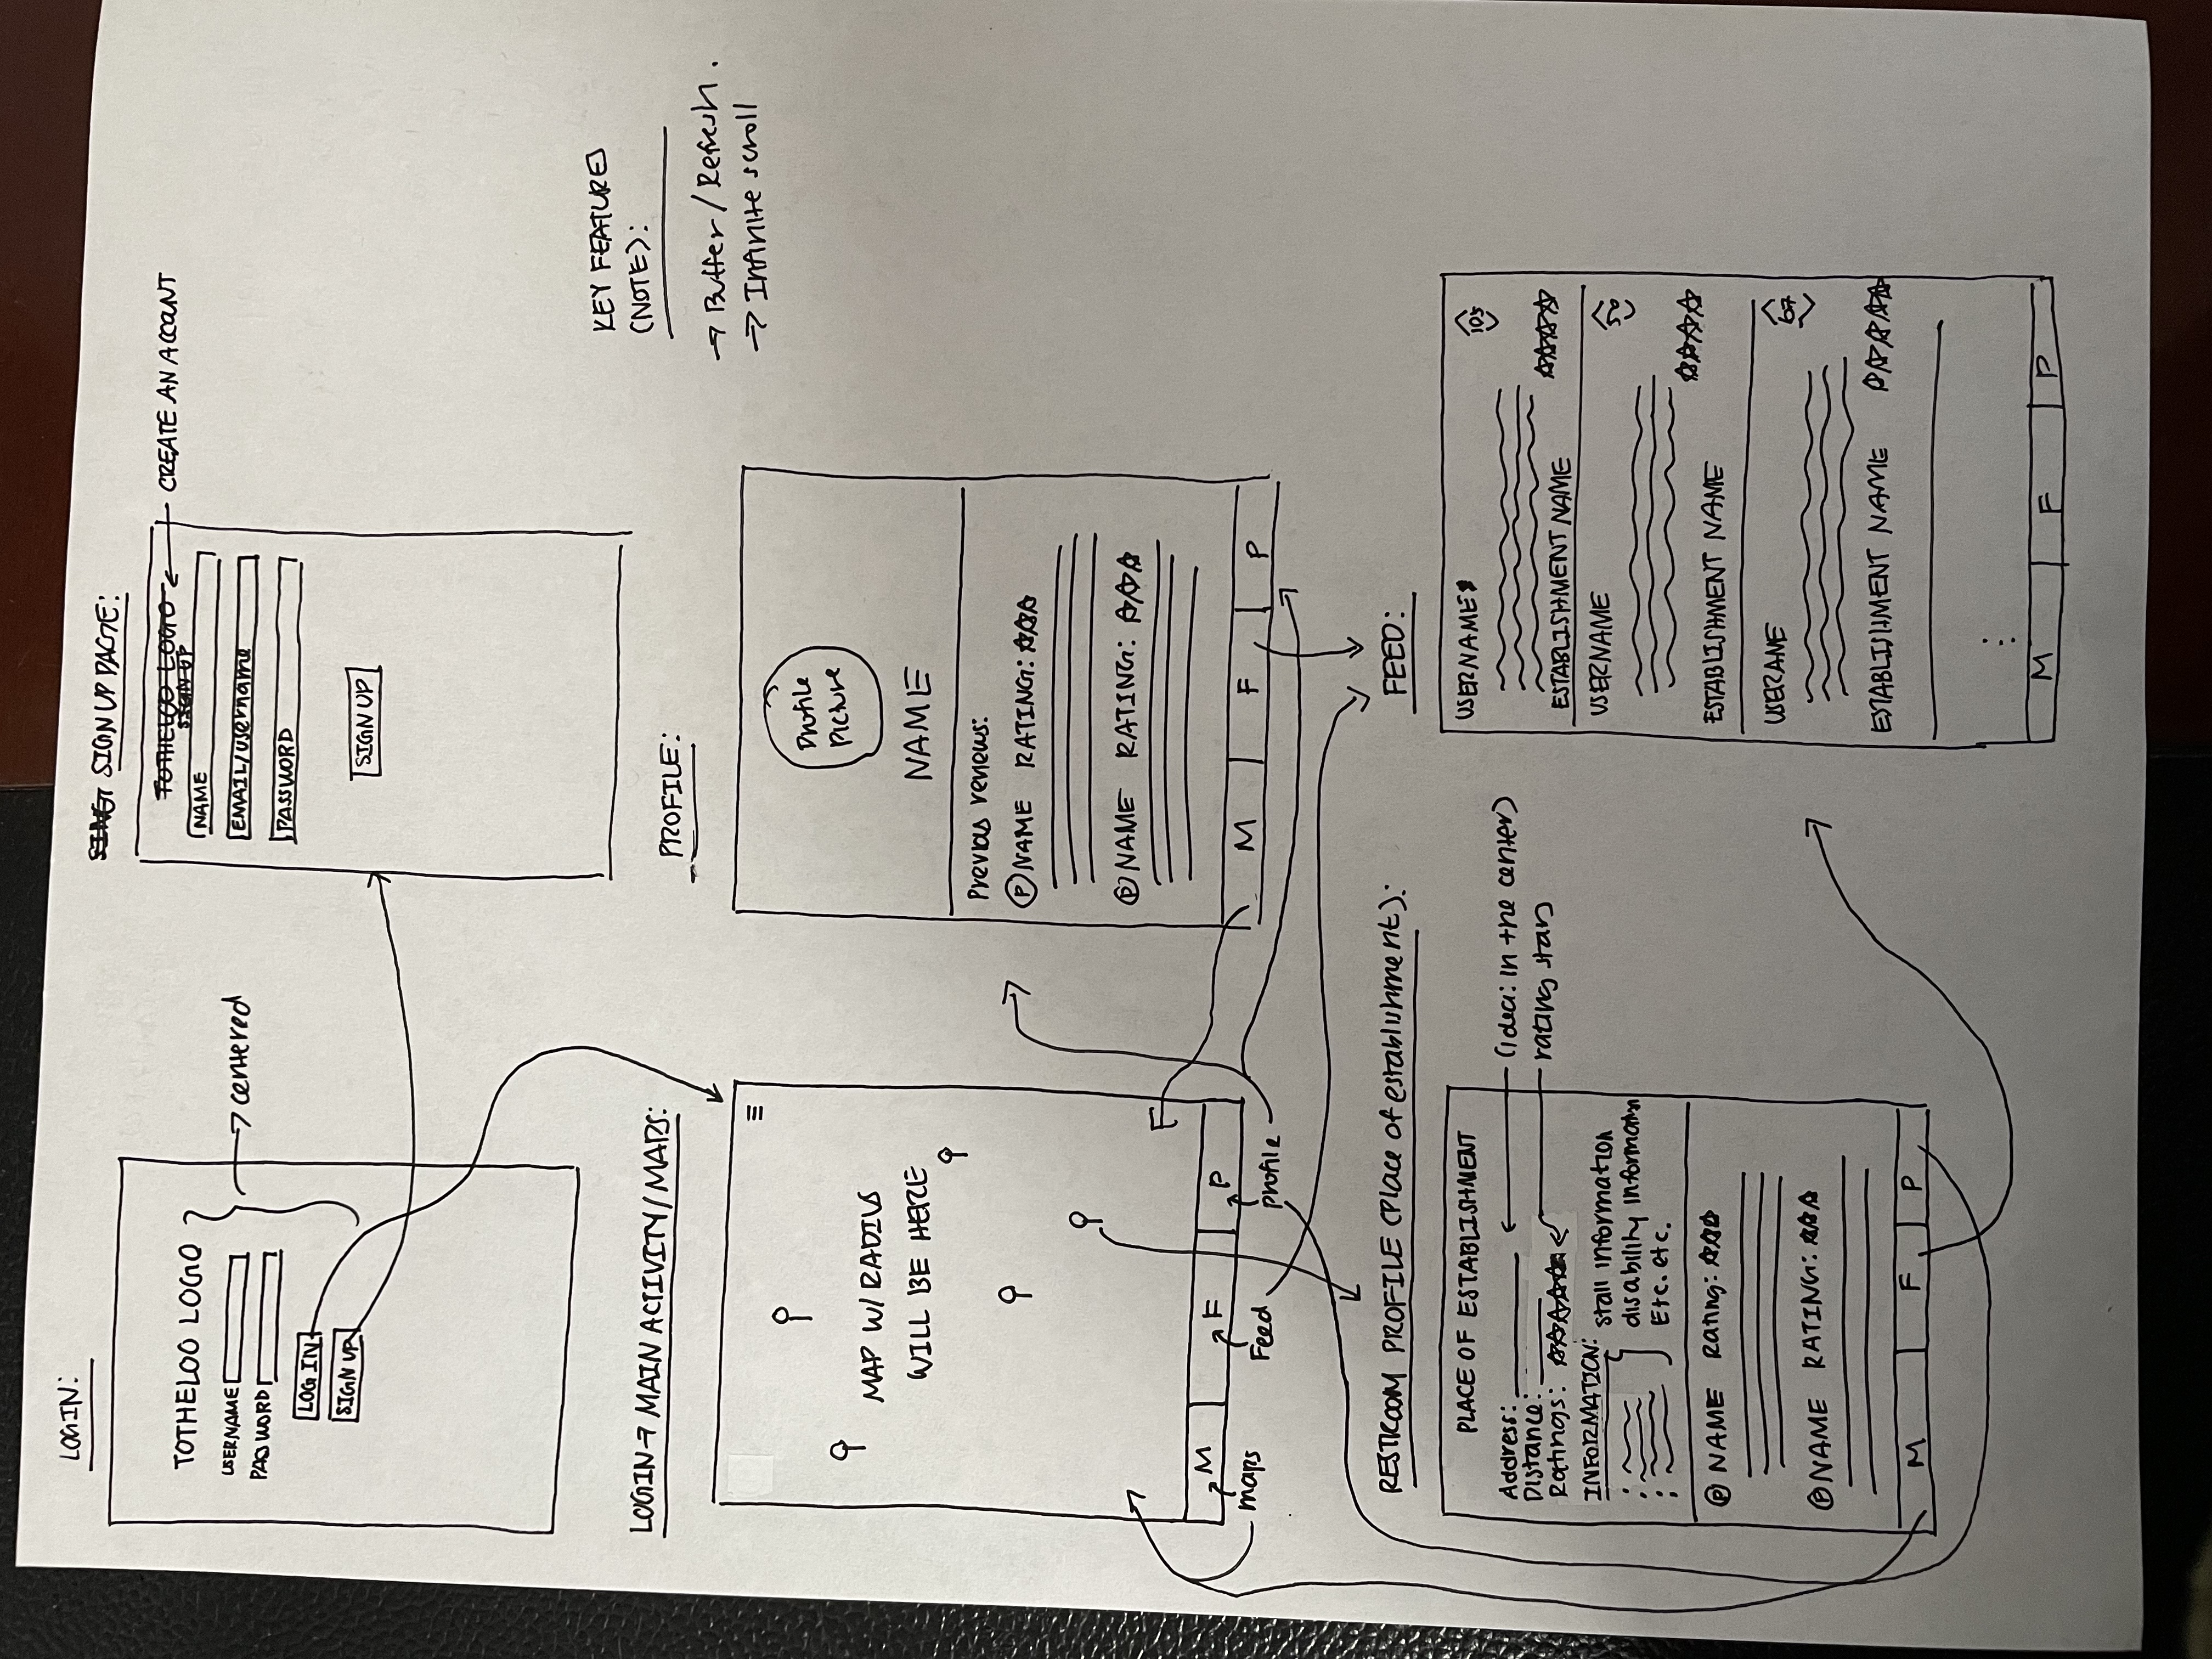 LOGIN:
TOTHELOO LOGO
USERNAME
PASSWORD
LOG IN
SIGN UP
centered
SING SIGN UP PAGE:
TOTHELOO LOGO
SIGN UP
CREATE AN ACCOUNT
NAME
EMAIL/username
PASSWORD
SIGN UP
KEY FEATURES
(NOTE):
→ Buffer/Refresh.
→ Infinite scroll
LOGIN → MAIN ACTIVITY/MAPS:
MAP W/ RADIUS
WILL BE HERE
M F P
maps
Feed
Profile
PROFILE:
Profile
Picture
NAME
Previous reviews:
P NAME RATING: ☆☆☆
P NAME RATING: ☆☆☆
M F P
RESTROOM PROFILE (Place of establishment):
PLACE OF ESTABLISHMENT
Address:
(idea: in the center)
Distance:
Ratings: ☆☆☆☆☆
rating stars
INFORMATION:
stall information
disability information
Etc. etc.
P NAME Rating: ☆☆☆
P NAME RATING: ☆☆☆
M F P
FEED:
USERNAME
105
☆☆☆☆
ESTABLISHMENT NAME
USERNAME
50
☆☆☆☆
ESTABLISHMENT NAME
USERANE
67
ESTABLISHMENT NAME ☆☆☆☆☆
M F P